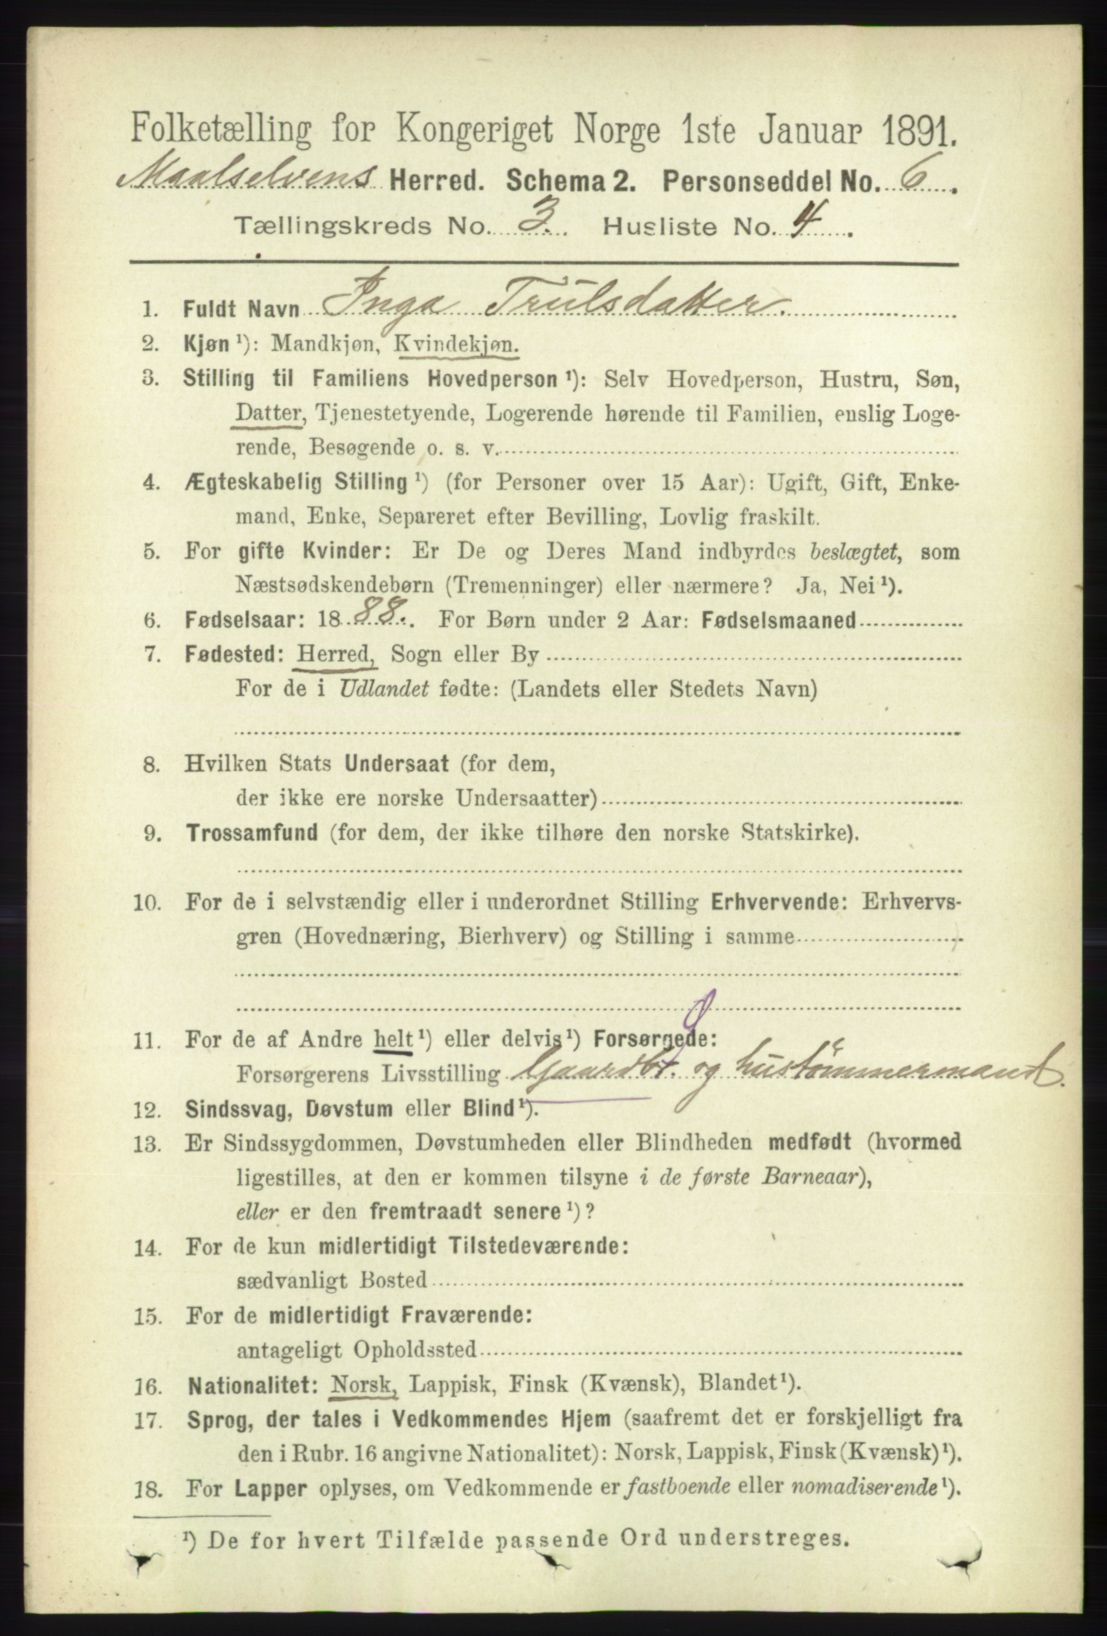 Folketælling for Kongeriget Norge 1ste Januar 1891.
Maalselvens Herred. Schema 2. Personseddel No. 6.
Tællingskreds No. 3. Husliste No. 4.
1. Fuldt Navn Inga Trulsdatter.
2. Kjøn ¹): Mandkjøn, Kvindekjøn.
3. Stilling til Familiens Hovedperson ¹): Selv Hovedperson, Hustru, Søn,
Datter, Tjenestetyende, Logerende hørende til Familien, enslig Loge-
rende, Besøgende o. s. v.
4. Ægteskabelig Stilling ¹) (for Personer over 15 Aar): Ugift, Gift, Enke-
mand, Enke, Separeret efter Bevilling, Lovlig fraskilt.
5. For gifte Kvinder: Er De og Deres Mand indbyrdes beslægtet, som
Næstsødskendebørn (Tremenninger) eller nærmere? Ja, Nei ¹).
6. Fødselsaar: 1888. For Børn under 2 Aar: Fødselsmaaned
7. Fødested: Herred, Sogn eller By
For de i Udlandet fødte: (Landets eller Stedets Navn)
8. Hvilken Stats Undersaat (for dem,
der ikke ere norske Undersaatter)
9. Trossamfund (for dem, der ikke tilhøre den norske Statskirke).
10. For de i selvstændig eller i underordnet Stilling Erhvervende: Erhvervs-
gren (Hovednæring, Bierhverv) og Stilling i samme
11. For de af Andre helt ¹) eller delvis ¹) Forsørgede:
Forsørgerens Livsstilling Gaardbr. og hustømmermand.
12. Sindssvag, Døvstum eller Blind ¹).
13. Er Sindssygdommen, Døvstumheden eller Blindheden medfødt (hvormed
ligestilles, at den er kommen tilsyne i de første Barneaar),
eller er den fremtraadt senere ¹)?
14. For de kun midlertidigt Tilstedeværende:
sædvanligt Bosted
15. For de midlertidigt Fraværende:
antageligt Opholdssted
16. Nationalitet: Norsk, Lappisk, Finsk (Kvænsk), Blandet ¹).
17. Sprog, der tales i Vedkommendes Hjem (saafremt det er forskjelligt fra
den i Rubr. 16 angivne Nationalitet): Norsk, Lappisk, Finsk (Kvænsk) ¹).
18. For Lapper oplyses, om Vedkommende er fastboende eller nomadiserende ¹).
¹) De for hvert Tilfælde passende Ord understreges.